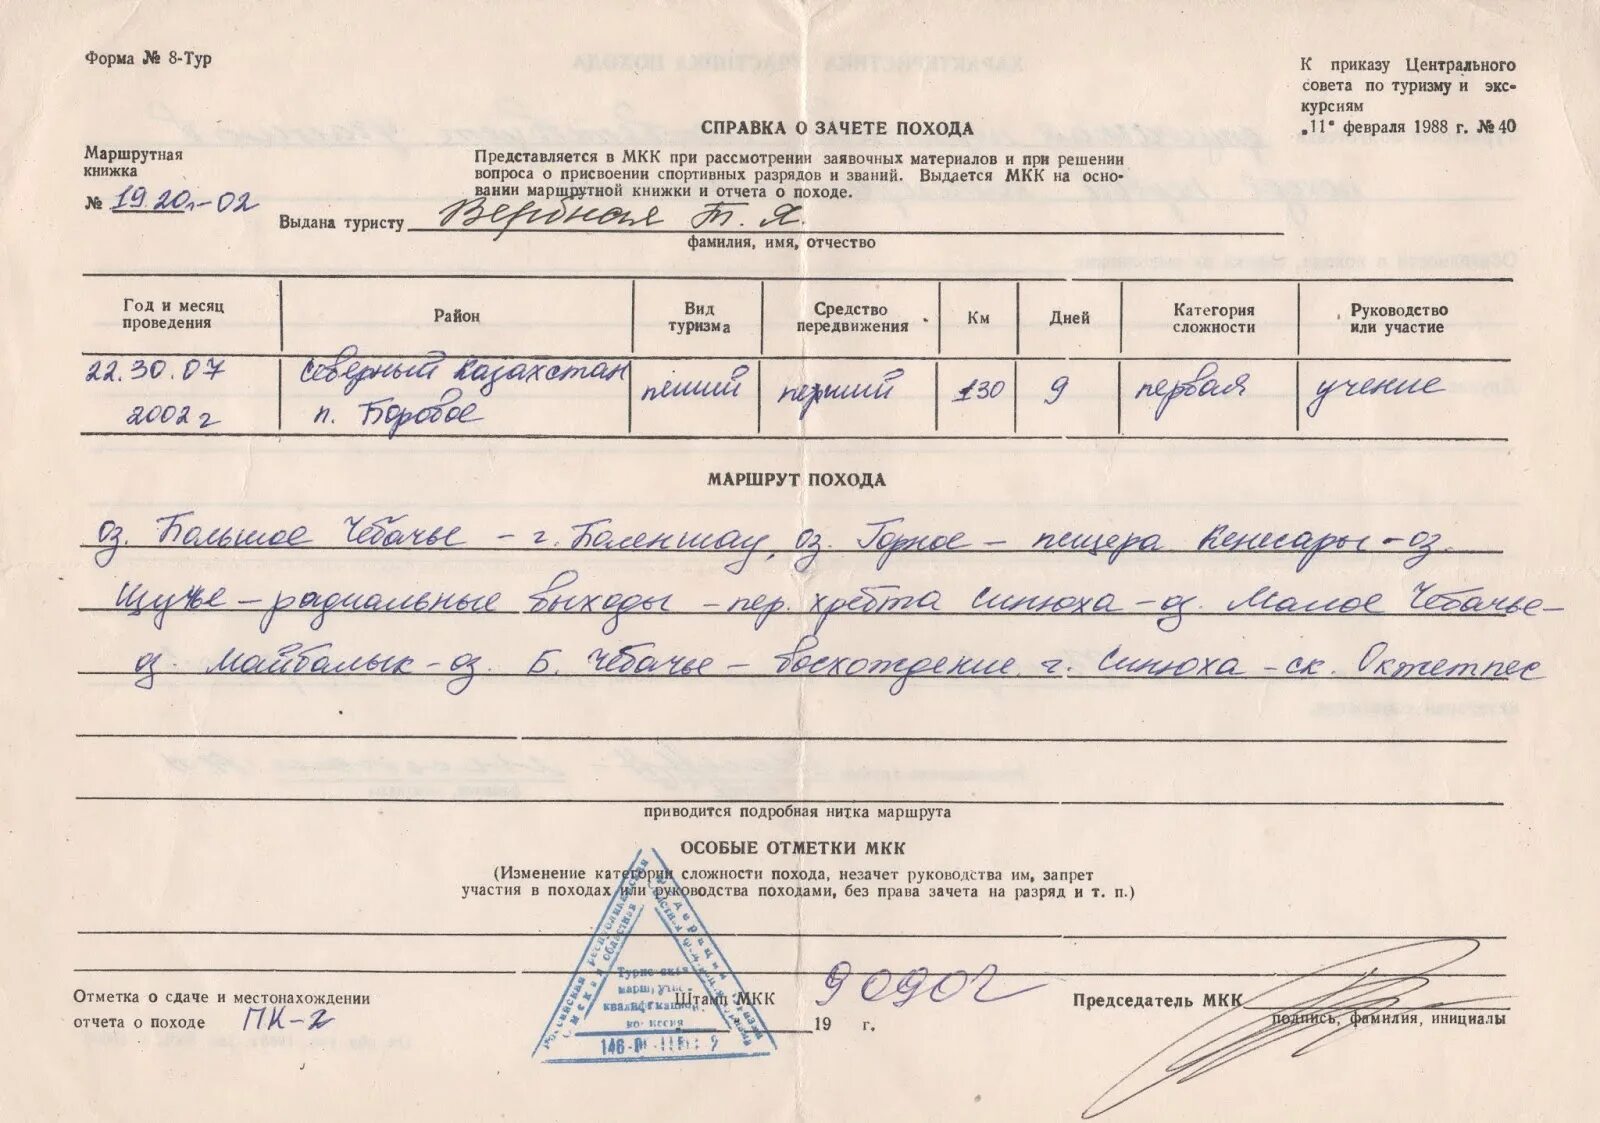 Форма № 8-Тур
К приказу Центрального
совета по туризму и экс-
курсиям
„11" февраля 1988 г. № 40
СПРАВКА О ЗАЧЕТЕ ПОХОДА
Маршрутная
книжка
№ 19.20л-02
Представляется в МКК при рассмотрении заявочных материалов и при решении
вопроса о присвоении спортивных разрядов и званий. Выдается МКК на осно-
вании маршрутной книжки и отчета о походе.
Выдана туристу Вербная Т. Я.
фамилия, имя, отчество
Год и месяц
проведения
Район
Вид
туризма
Средство
передвижения
Км
Дней
Категория
сложности
Руководство
или участие
22.30.07
2002 г
Северный Казахстан
п. Боровое
пеший
130
9
первая
МАРШРУТ ПОХОДА
оз. Большое Чебачье – г. Боленшау, оз. Горное – пещера Кенесары – оз.
Щучье – радиальные выходы – пер. хребта Синюха – оз. Малое Чебачье –
оз. Майбалык – оз. Б. Чебачье – восхождение г. Синюха – ск. Окжетпес
приводится подробная нитка маршрута
ОСОБЫЕ ОТМЕТКИ МКК
(Изменение категории сложности похода, незачет руководства им, запрет
участия в походах или руководства походами, без права зачета на разряд и т. п.)
Отметка о сдаче и местонахождении
отчета о походе ПК-2
Штамп МКК
19 г.
Председатель МКК
подпись, фамилия, инициалы